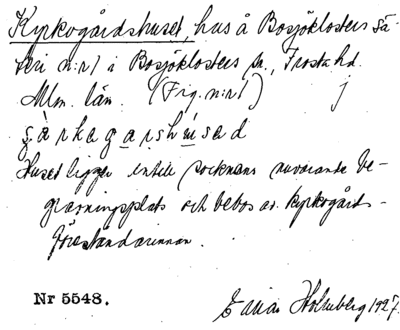 Kyrkogårdshuset, hus å Bosjöklosters sä-
teri n:r 1 i Bosjöklosters sn., Frosta hd.
Mlm. län. (Frg. n:r 1) j
Huset ligger intill socknens nuvarande be-
gravningsplats och bebos av kyrkogårds-
föreståndarinnan.
Nr 5548. Holmberg 1927.